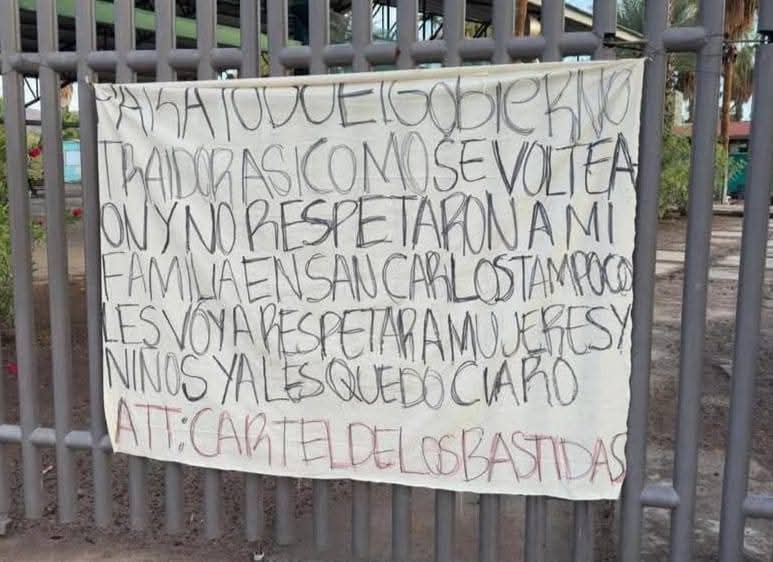 PARA TODO El GObiERNO
TRAIDOR ASI COMO SE VOLTEA
ON Y NO RESPETARON A MI
FAMILIA EN SAN CARLOS TAMPOCO
LES VOY A RESPETAR A MUJERES Y
NIÑOS YA LES QUEDO CLARO
ATT: CARTEL DE LOS BASTIDAS